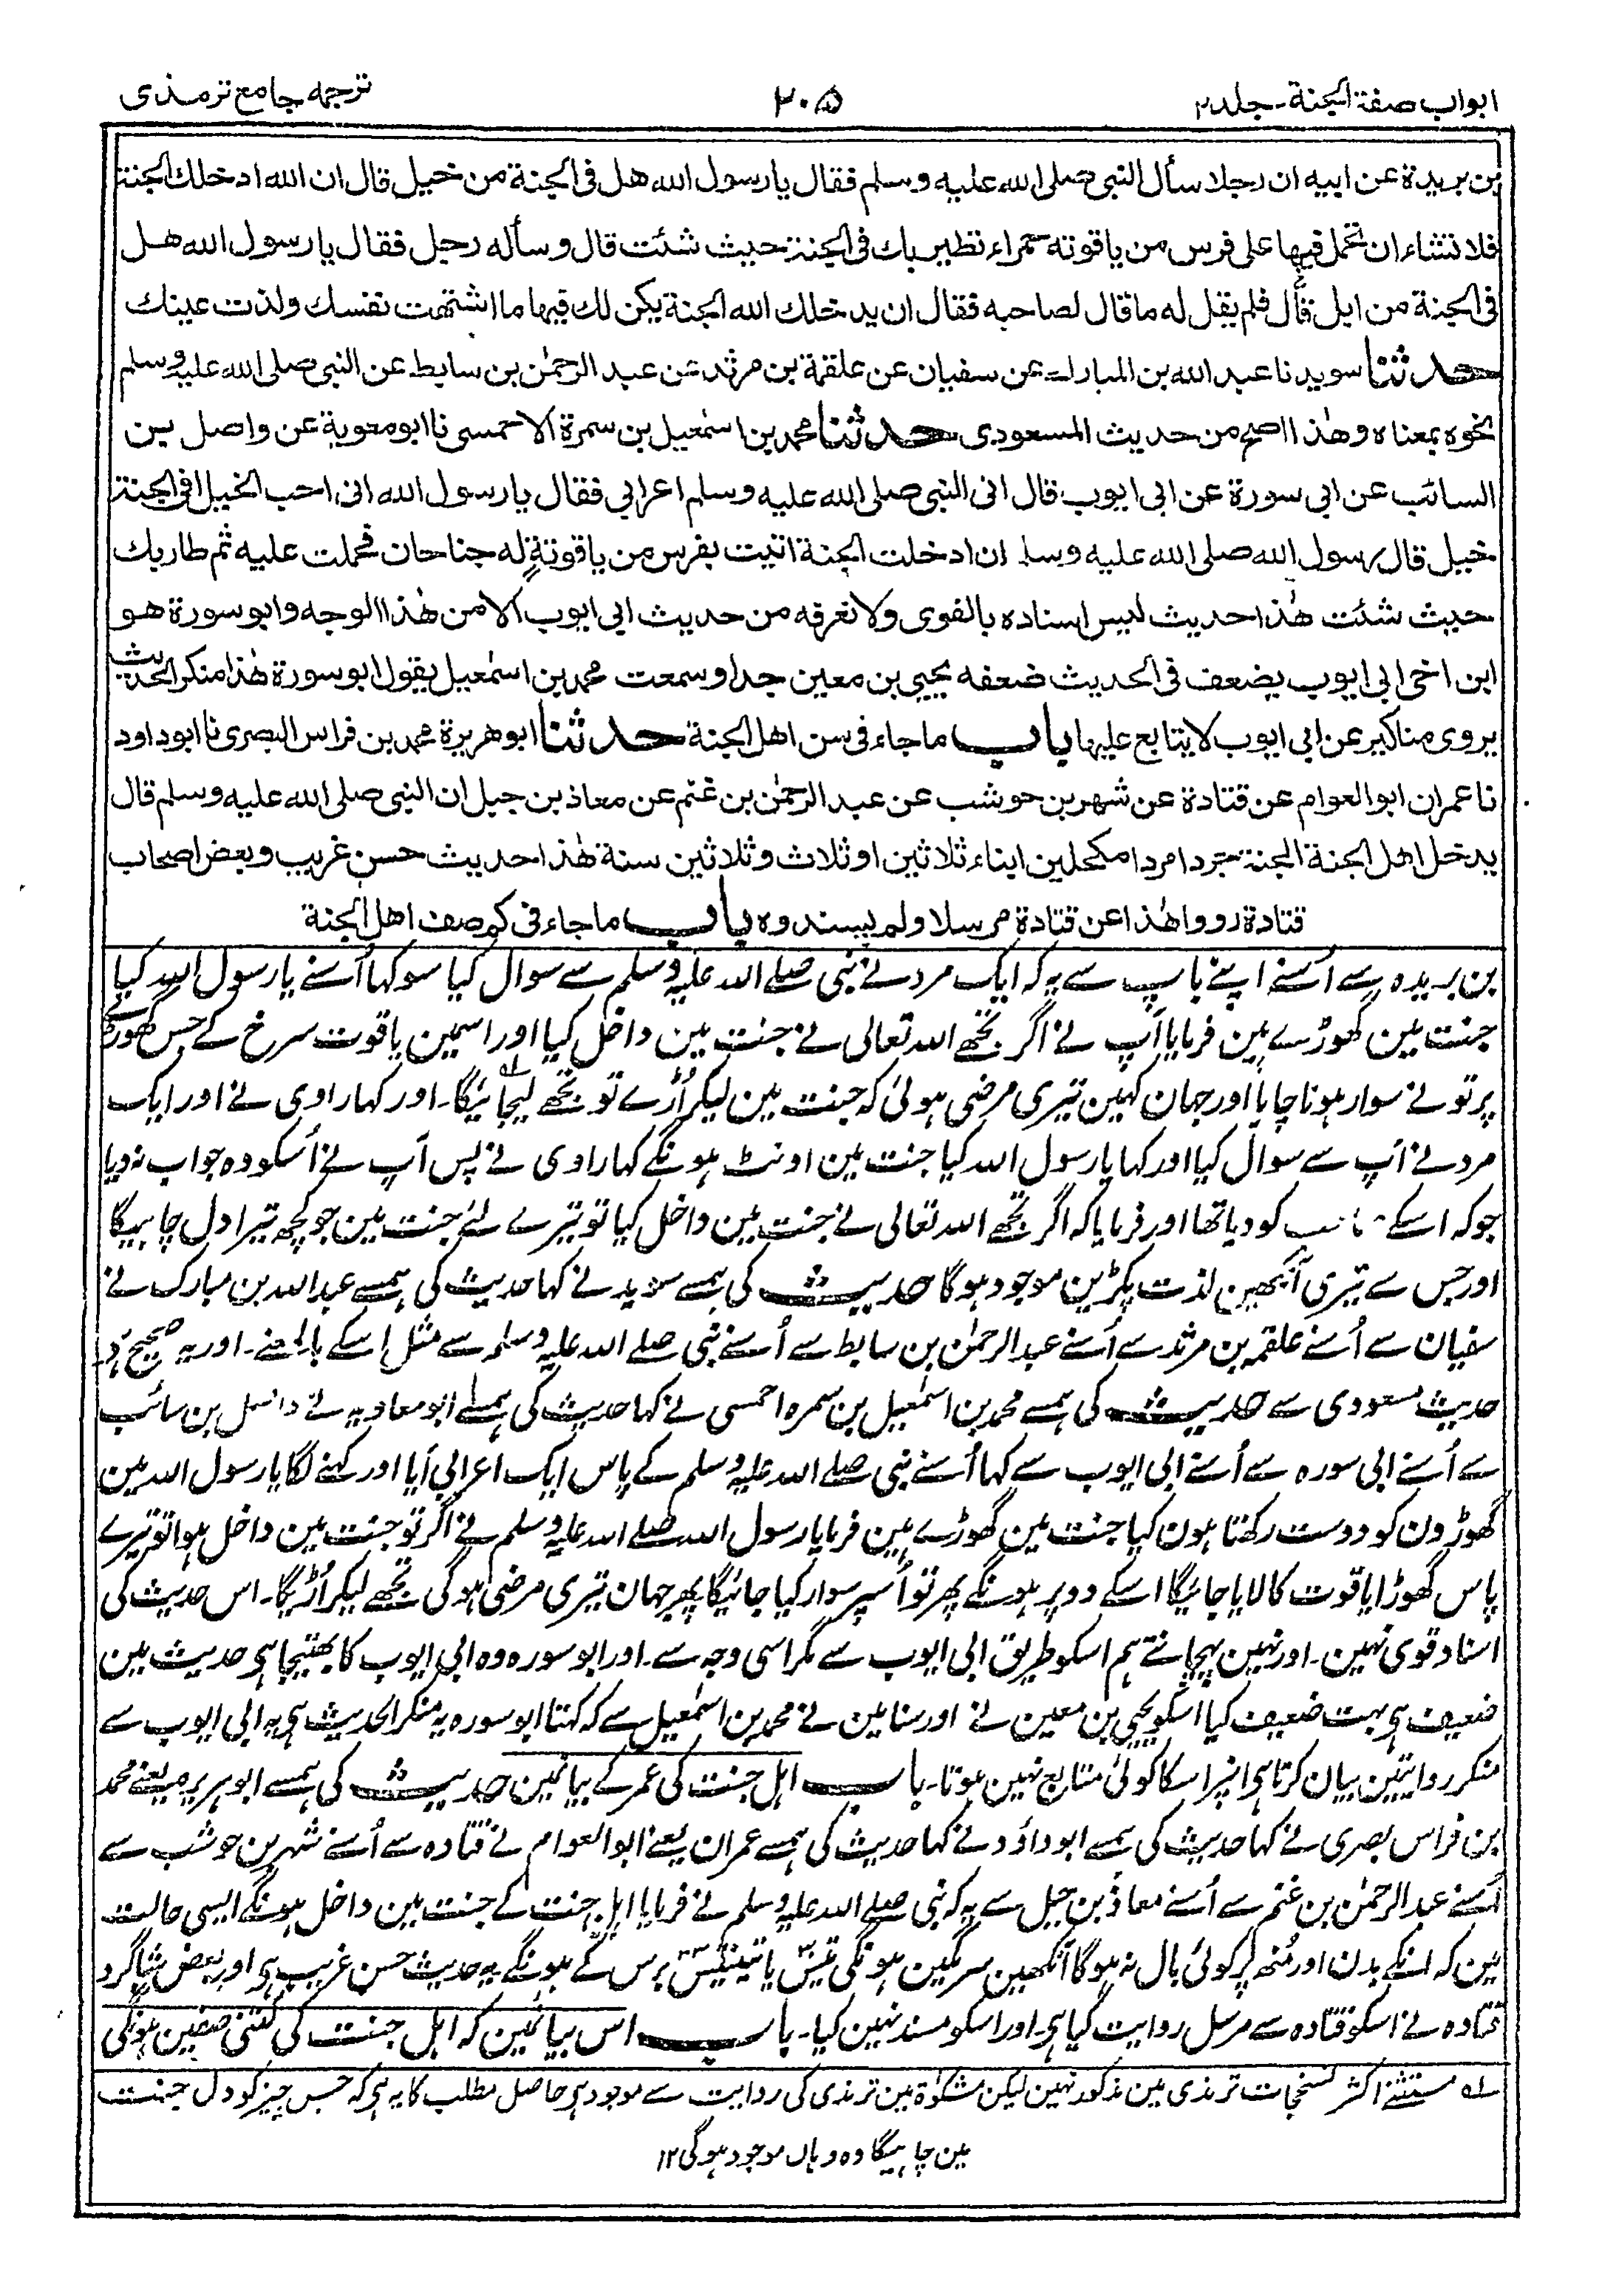 ابواب صفة الجنة - جلد ۲
۲۰۵
ترجمه جامع ترمذی
بن بريدة عن ابيه ان رجلا سأل النبي صلى الله عليه وسلم فقال يا رسول الله هل في الجنة من خيل قال ان الله ادخلك الجنة
فلا تشاء ان تحمل فيها على فرس من ياقوتة حمراء تطير بك في الجنة حيث شئت قال وسأله رجل فقال يا رسول الله هل
في الجنة من ابل قال فلم يقل له ما قال لصاحبه فقال ان يدخلك الله الجنة يكن لك فيها ما اشتهت نفسك ولذت عينك
حدثنا سويد نا عبد الله بن المبارك عن سفيان عن علقمة بن مرثد عن عبد الرحمٰن بن سابط عن النبي صلى الله عليه وسلم
نحوه بمعناه وهٰذا اصح من حديث المسعودى حدثنا محمد بن اسمٰعيل بن سمرة الاحمسى نا ابو معوية عن واصل بن
السائب عن ابى سورة عن ابى ايوب قال اتى النبي صلى الله عليه وسلم اعرابي فقال يا رسول الله انى احب الخيل افى الجنة
خيل قال رسول الله صلى الله عليه وسلم ان ادخلت الجنة اتيت بفرس من ياقوتةٍ له جناحان فحملت عليه ثم طار بك
حيث شئت هٰذا حديث ليس اسناده بالقوى ولا نعرفه من حديث ابي ايوب الا من هٰذا الوجه وابو سورة هو
ابن اخى ابي ايوب يضعف فى الحديث ضعفه يحيى بن معين جدا وسمعت محمد بن اسمٰعيل يقول ابو سورة هٰذا منكر الحديث
يروى مناكير عن ابى ايوب لا يتابع عليها باب ما جاء فى سن اهل الجنة حدثنا ابو هريرة محمد بن فراس البصرى نا ابو داود
نا عمران ابو العوام عن قتادة عن شهر بن حوشب عن عبد الرحمٰن بن غنم عن معاذ بن جبل ان النبي صلى الله عليه وسلم قال
يدخل اهل الجنة الجنة جردا مردا مكحلين ابناء ثلاثين او ثلاث وثلاثين سنة هٰذا حديث حسن غريب وبعض اصحاب
قتادة رووا هٰذا عن قتادة مرسلا ولم يسندوه باب ما جاء فى كم صف اهل الجنة
بن بریدہ سے اُسنے اپنے باپ سے یہ کہ ایک مرد نے نبی صلے اللہ علیہ وسلم سے سوال کیا سو کہا اُسنے یا رسول اللہ کیا
جنت مین گھوڑے ہین فرمایا آپ نے اگر تجھے اللہ تعالی نے جنت مین داخل کیا اور اسمین یاقوت سرخ کے جس گھوڑے
پر تو نے سوار ہونا چاہا اور جہان کہین تیری مرضی ہوئی کہ جنت مین لیکر اُڑے تو تجھے لیجائیگا۔ اور کہا راوی نے اور ایک
مرد نے آپ سے سوال کیا اور کہا یا رسول اللہ کیا جنت مین اونٹ ہونگے کہا راوی نے پس آپ نے اُسکو وہ جواب نہ دیا
جو کہ اسکے کو دیا تھا اور فرمایا کہ اگر تجھے اللہ تعالی نے جنت مین داخل کیا تو تیرے لئے جنت مین جو کچھ تیرا دل چاہیگا
اور جس سے تیری آنکھین لذت پکڑین موجود ہوگا حدیث کی ہمسے سوید نے کہا حدیث کی ہمسے عبد اللہ بن مبارک نے
سفیان سے اُسنے علقمہ بن مرثد سے اُسنے عبد الرحمٰن بن سابط سے اُسنے نبی صلے اللہ علیہ وسلم سے مثل اسکے بالمعنے۔ اور یہ صحیح ہے
حدیث مسعودی سے حدیث کی ہمسے محمد بن اسمٰعیل بن سمرہ احمسی نے کہا حدیث کی ہمسے ابو معاویہ نے واصل بن سائب
سے اُسنے ابی سورہ سے اُسنے ابی ایوب سے کہا اُسنے نبی صلے اللہ علیہ وسلم کے پاس ایک اعرابی آیا اور کہنے لگا یا رسول اللہ مین
گھوڑون کو دوست رکھتا ہون کیا جنت مین گھوڑے ہین فرمایا رسول اللہ صلے اللہ علیہ وسلم نے اگر تو جنت مین داخل ہوا تو تیرے
پاس گھوڑا یاقوت کا لایا جائیگا اسکے دو پر ہونگے پھر تو اُسپر سوار کیا جائیگا پھر جہان تیری مرضی ہوگی تجھے لیکر اُڑیگا۔ اس حدیث کی
اسناد قوی نہین۔ اور نہین پہچانتے ہم اسکو طریق ابی ایوب سے مگر اسی وجہ سے۔ اور ابو سورہ وہ ابی ایوب کا بھتیجا ہی حدیث مین
ضعیف ہی بہت ضعیف کیا اسکو یحیی بن معین نے اور سنا مین نے محمد بن اسمٰعیل سے کہ کہتا ابو سورہ یہ منکر الحدیث ہی یہ ابی ایوب سے
منکر روایتین بیان کرتا ہی انپر اسکا کوئی متابع نہین ہوتا۔ باب اہل جنت کی عمر کے بیانمین حدیث کی ہمسے ابو ہریرہ یعنے محمد
بن فراس بصری نے کہا حدیث کی ہمسے ابو داؤد نے کہا حدیث کی ہمسے عمران یعنے ابو العوام نے قتادہ سے اُسنے شہر بن حوشب سے
اُسنے عبد الرحمٰن بن غنم سے اُسنے معاذ بن جبل سے یہ کہ نبی صلے اللہ علیہ وسلم نے فرمایا اہل جنت کے جنت مین داخل ہونگے ایسی حالت
مین کہ انکے بدن اور مُنھ پر کوئی بال نہ ہوگا آنکھین سرمگین ہونگی تیس یا تینتیس برس کے ہونگے یہ حدیث حسن غریب ہی اور بعض شاگرد
قتادہ نے اسکو قتادہ سے مرسل روایت کیا ہی۔ اور اسکو مسند نہین کیا۔ باب اس بیانمین کہ اہل جنت کی کتنی صفین ہونگی
لہ مستثنے اکثر نسخجات ترمذی مین مذکور نہین لیکن مشکوٰۃ مین ترمذی کی روایت سے موجود ہی حاصل مطلب کا یہ ہی کہ جس چیز کو دل جنت
مین چاہیگا وہ وہاں موجود ہوگی ۱۲